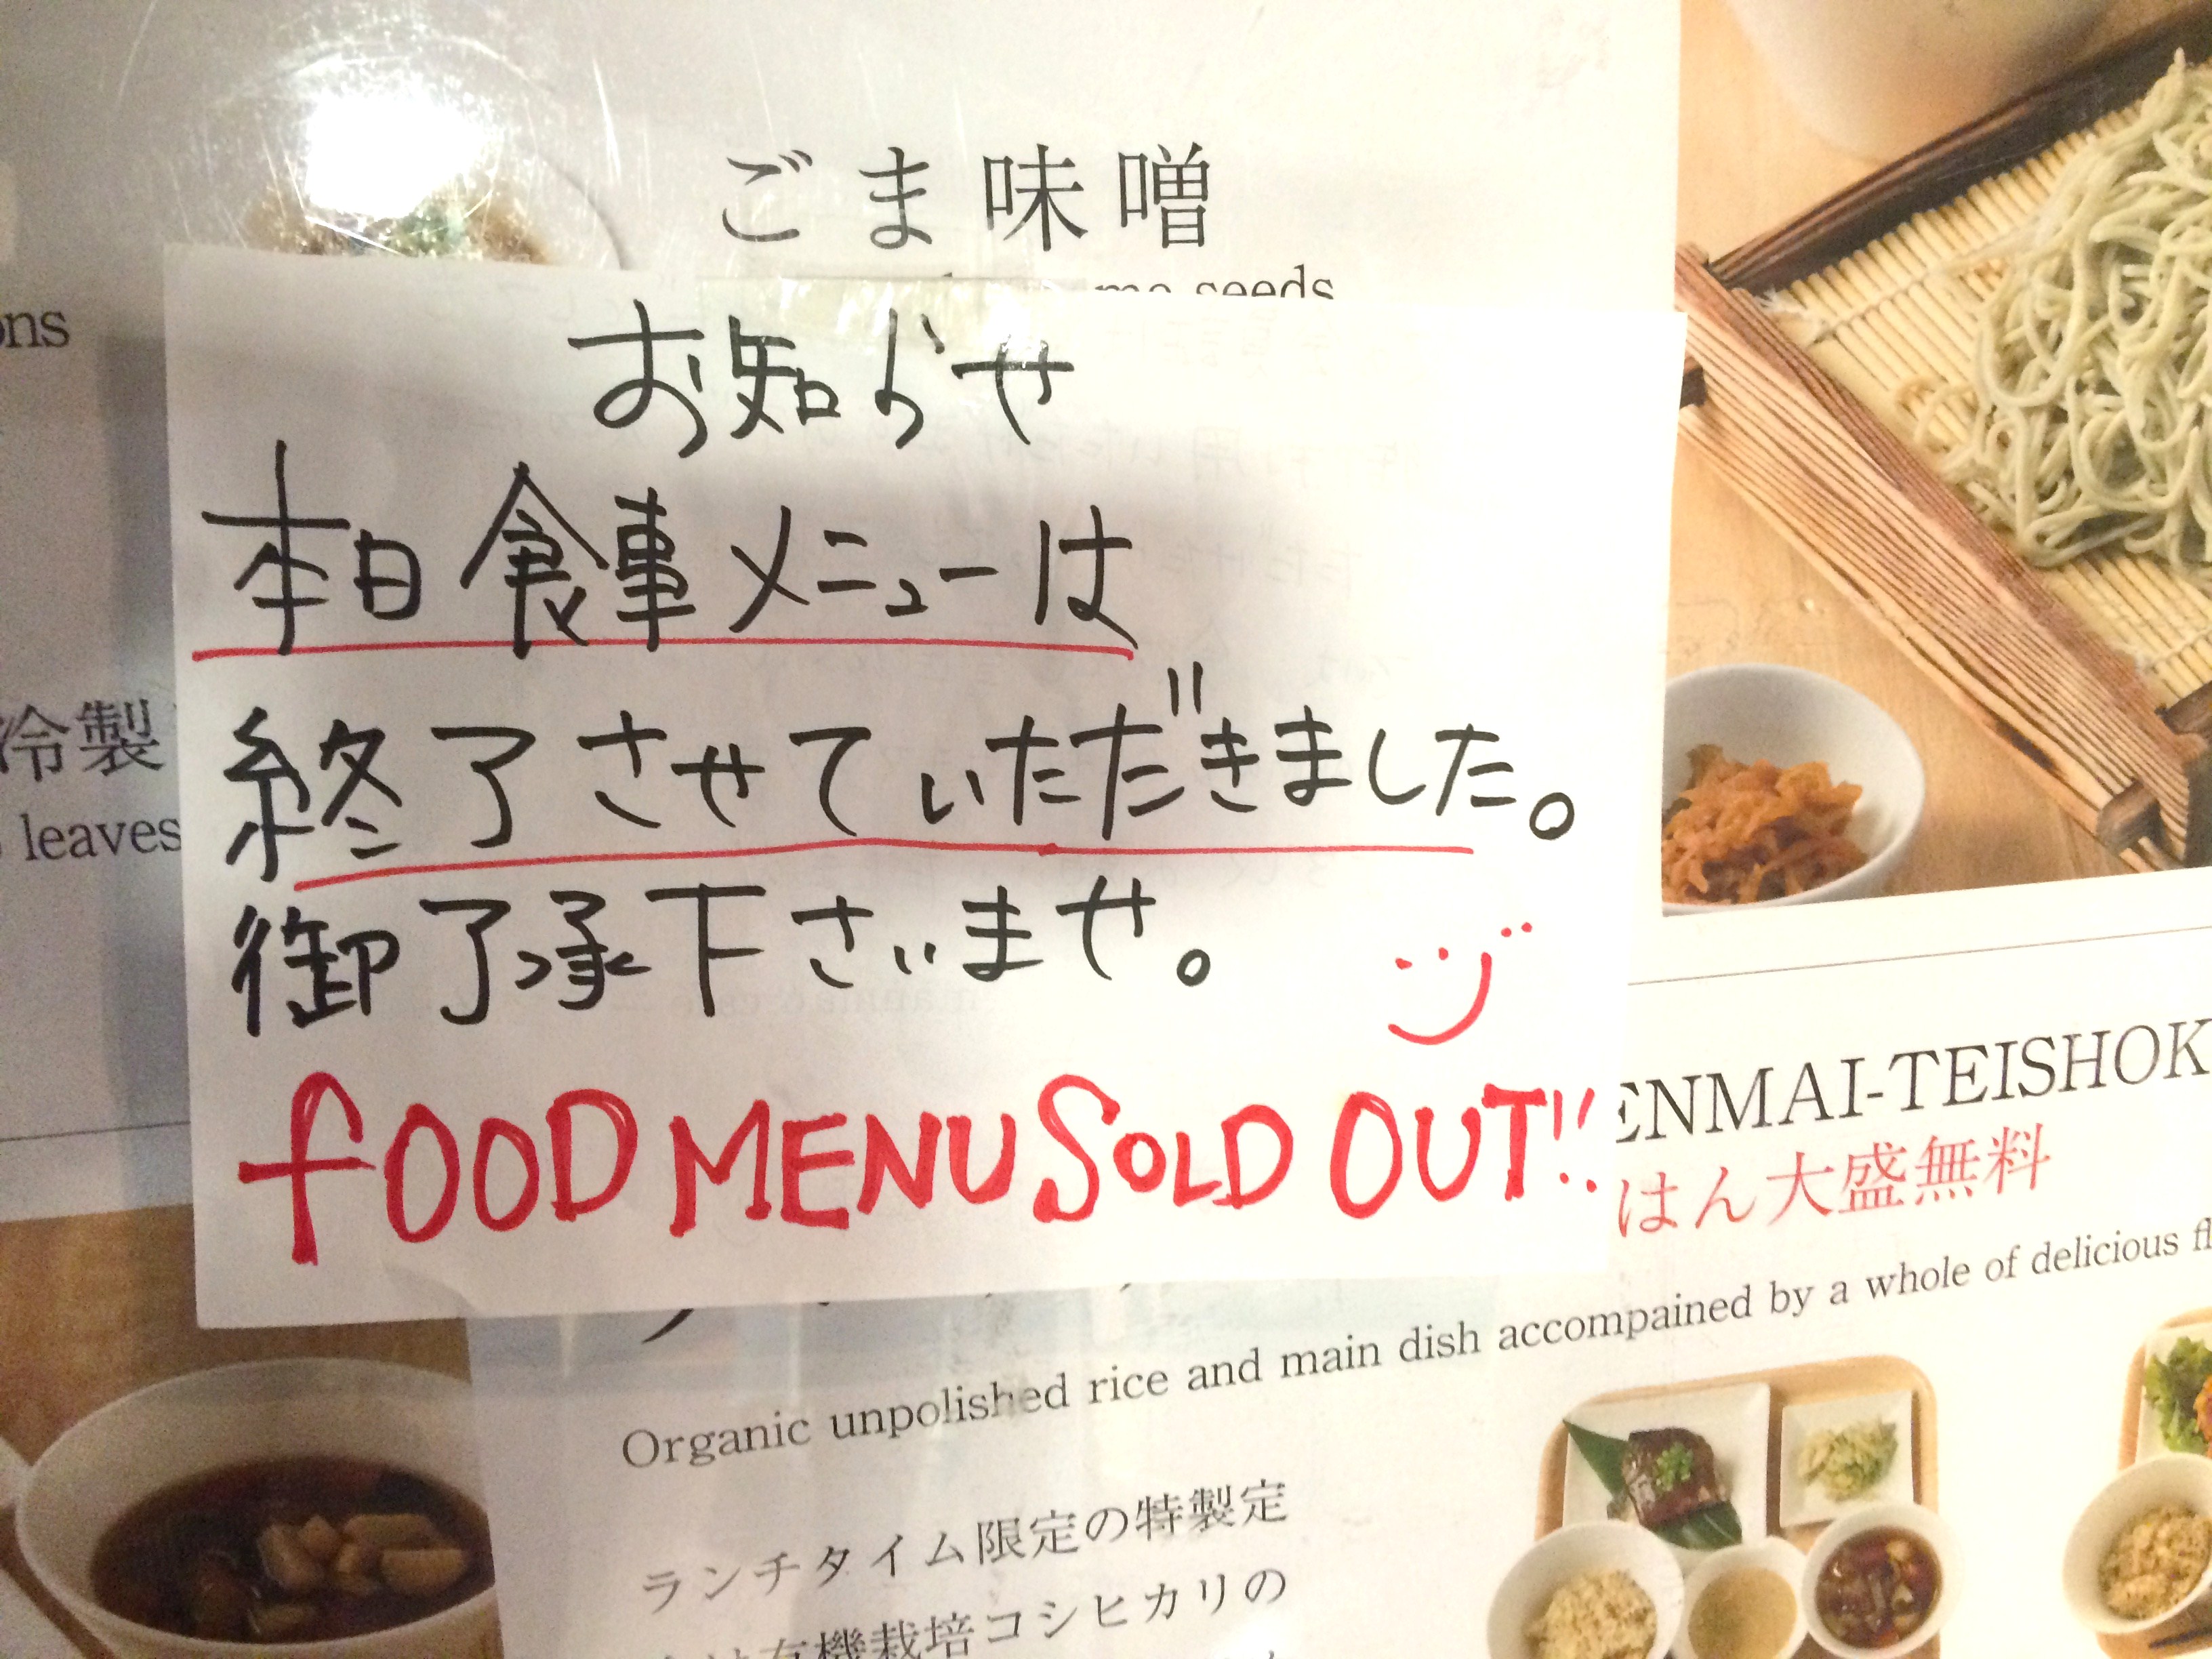 ごま味噌
seeds
お知らせ
本日食事メニューは
終了させていただきました。
御了承下さいませ。
fOOD MENU SOLD OUT!!
ons
冷製
leaves
ENMAI-TEISHOK
はん大盛無料
Organic unpolished rice and main dish accompained by a whole of delicious
ランチタイム限定の特製定
有機栽培コシヒカリの